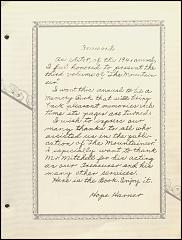 Foreword
As editor of the 1941 annual,
I feel honored to present the
third volume of "The Mountain-
eer."
I want this annual to be a
Memory Book that will bring
back pleasant memories each
time its pages are turned.
I wish to express so
many thanks to all who
assisted us in the public-
ation of "The Mountaineer."
I especially want to thank
Mr. Mitchell for his acting
as our Treasurer and his
many other services.
Here is the Book. Enjoy it.
Hope Harner